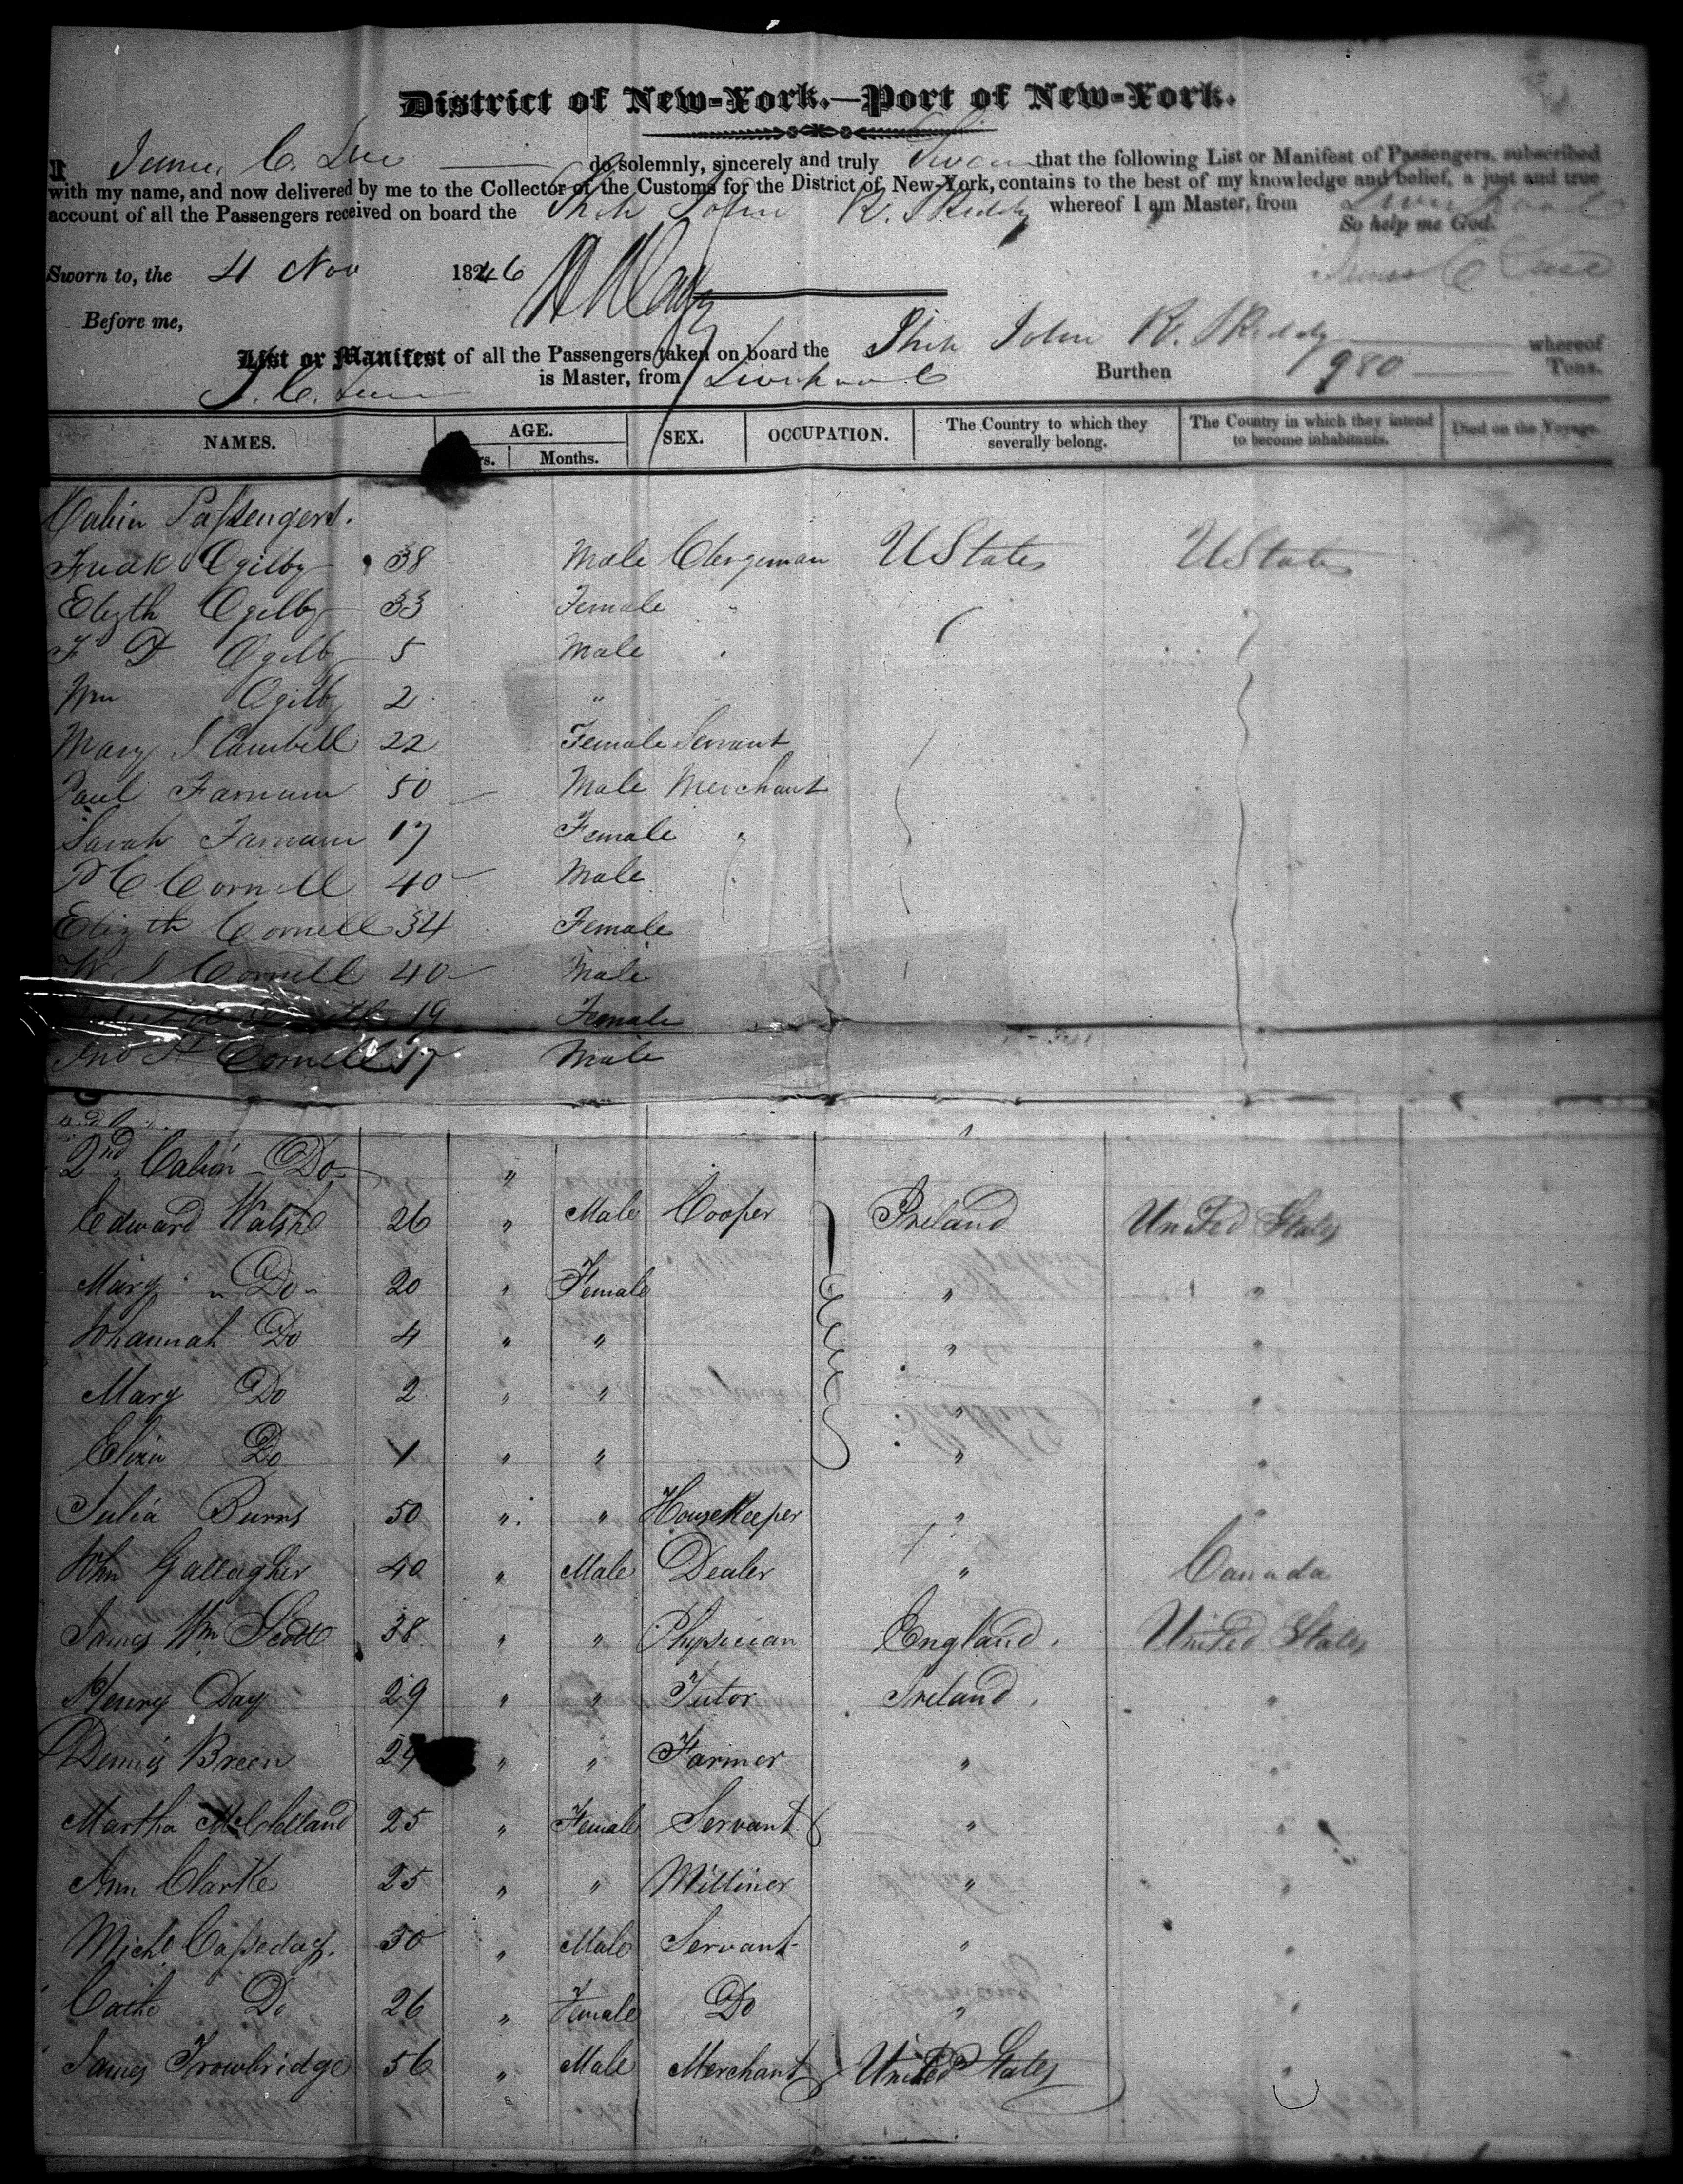 District of New-York.—Port of New-York.
I James C. Luce do solemnly, sincerely and truly Swear that the following List or Manifest of Passengers, subscribed
with my name, and now delivered by me to the Collector of the Customs for the District of New-York, contains to the best of my knowledge and belief, a just and true
account of all the Passengers received on board the Ship John R. Skiddy whereof I am Master, from Liverpool
So help me God.
Sworn to, the 4 Nov 1846
James C Luce
Before me,
List or Manifest of all the Passengers taken on board the Ship John R. Skiddy whereof
J. C. Luce is Master, from Liverpool Burthen 980 Tons.
NAMES. AGE. SEX. OCCUPATION. The Country to which they severally belong. The Country in which they intend to become inhabitants. Died on the Voyage.
Months.
Cabin Passengers.
Fredk Ogilby 38 Male Clergeman U States U States
Elizth Ogilby 33 Female "
F D Ogilby 5 Male "
Wm Ogilby 2 "
Mary S Cambell 22 Female Servant
Paul Farnum 50 Male Merchant
Sarah Farnum 17 Female "
Cornell 40 Male
Elizth Cornell 34 Female
W S Cornell 40 Male
19 Female
Jno H Cornell 17 Male
2nd Cabin Do "
Edward Walsh 26 " Male Cooper Ireland United States
Mary " Do " 20 " Female " "
Johannah Do 4 " " " "
Mary Do 2 " " " "
Eliza Do 1 " " " "
Julia Burns 50 " " HouseKeeper " "
John Gallagher 40 " Male Dealer " Canada
James Wm Scott 38 " " Physician England. United States
Henry Day 29 " " Tutor Ireland. "
Dennis Breen 29 " " Farmer " "
Martha McClelland 25 " Female Servant " "
Ann Clarke 25 " " Milliner " "
Michl Casseday. 30 " Male Servant " "
Cathe Do 26 " Female Do " "
James Trowbridge 56 " Male Merchant United States "